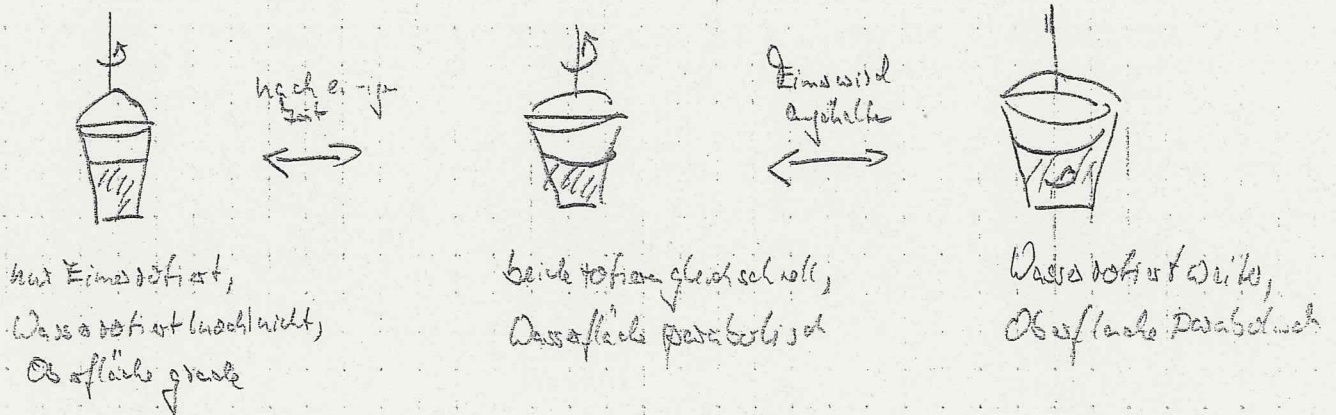 nach einiger
Zeit
Eimer wird
angehalten
nur Eimer rotiert,
Wasser rotiert (noch) nicht,
Oberfläche gerade
beide rotieren gleich schnell,
Wasserfläche parabolisch
Wasser rotiert weiter,
Oberfläche parabolisch